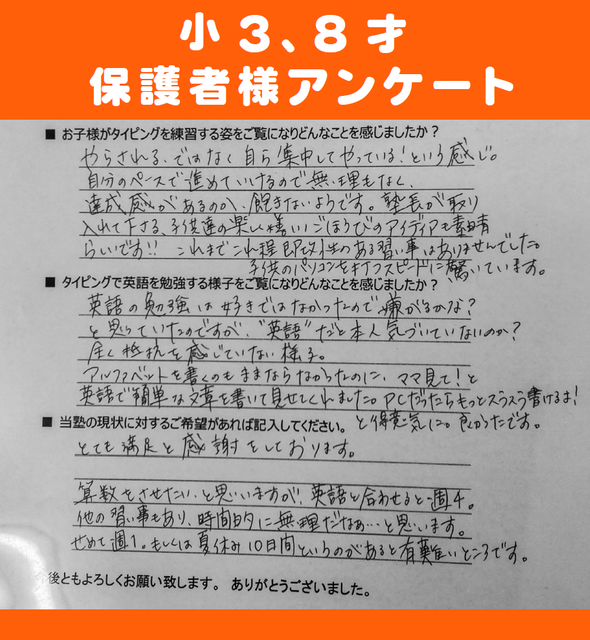 小3、8才
保護者様アンケート
■ お子様がタイピングを練習する姿をご覧になりどんなことを感じましたか？
やらされる、ではなく自ら集中してやっている！という感じ。
自分のペースで進めていけるので無理もなく、
達成感があるのか、飽きないようです。塾長が取り
入れて下さる、子供達の楽しい様々ごほうびのアイディアも素晴
らしいです!! これまでこれ程即効性のある習い事はありませんでした。
子供のパソコンを打つスピードに驚いています。
■ タイピングで英語を勉強する様子をご覧になりどんなことを感じましたか？
英語の勉強は好きではなかったので嫌がるかな？
と思っていたのですが、"英語"だと本人気づいていないのか？
全く抵抗を感じていない様子。
アルファベットを書くのもままならなかったのに、ママ見て！と
英語で簡単な文章を書いて見せてくれました。PCだったらもっとスラスラ書けるよ！
と得意気に
■ 当塾の現状に対するご希望があれば記入してください。
とても満足と感謝をしております。
算数をさせたい、と思いますが、英語と合わせると週4。
他の習い事もあり、時間的に無理だなぁ…と思います。
せめて週1。もしくは夏休み10日間というのがあると有難いところです。
後ともよろしくお願い致します。 ありがとうございました。